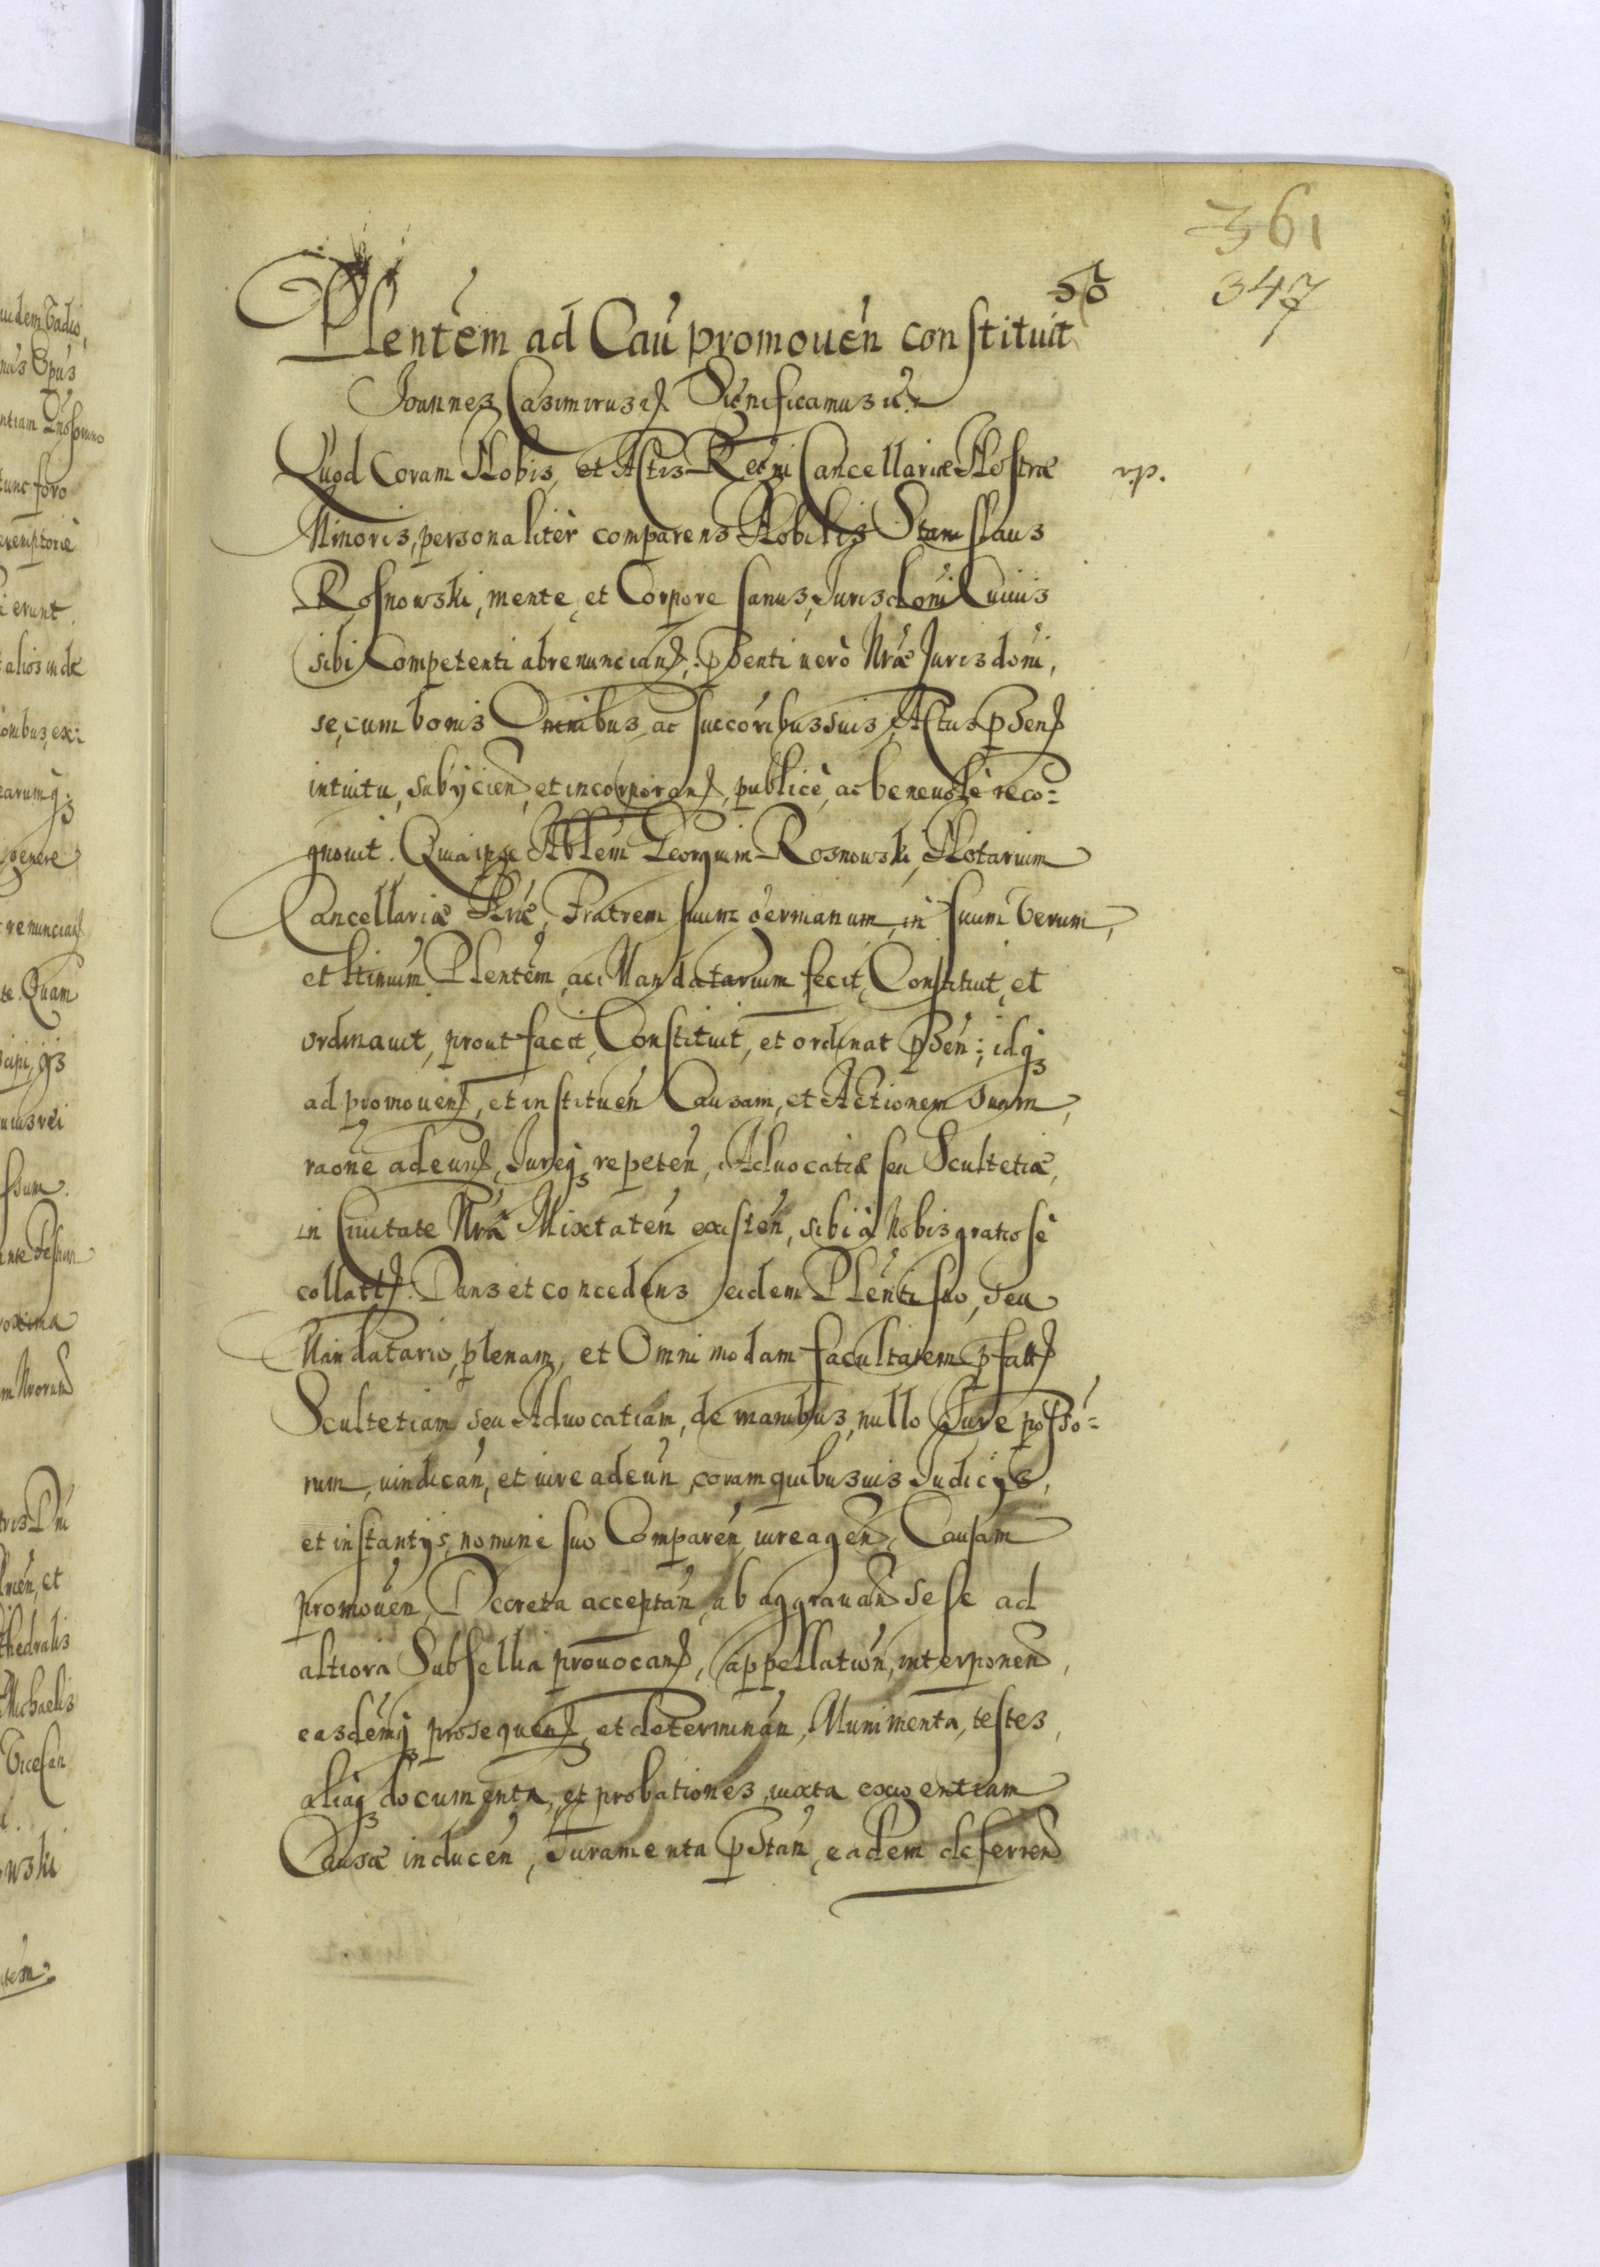 361
347
Plentem ad Cau promouen constituit
Joannes Casimirus Significamus
Quod Coram Nobis, et Actis Regni Cancellariæ Nostræ
Minoris, personaliter comparens Nobilis Stanislaus
Rosnowski, mente, et Corpore sanus, Jurisdoni Cuiuis
sibi Competenti abrenuncian, pñti uerò Nræ Jurisdoni,
se, cum bonis Omnibus, ac succoribus suis, Actus pñen
intuitu, subijcien, et incorporan, publicè, ac beneuolè reco=
gnouit. Quia ipse Nblem Georgium Rosnowski, Notarium
Cancellariæ Nræ, Fratrem suum Germanum, in suum Verum,
et ltimum Plentem, ac Mandatarium fecit, Constituit, et
ordinauit, prout facit, Constituit, et ordinat pñen; idq3
ad promouen, et instituen Causam, et Actionem suam,
raone adeun, Jureq3 repeten, Aduocatiæ seu Scultetiæ,
in Ciuitate Nra Mixtaten existen, sibi à Nobis gratiosè
collatæ. Dans et concedens eidem Plenti suo, seu
Mandatario, plenam, et Omnimodam facultatem pfatt
Scultetiam seu Aduocatiam, de manibus, nullo Jure posso=
rum, uindican, et iure adeun, coram quibusuis Judicijs,
et instantijs, nomine suo Comparen, iure agen, Causam
promouen, Decreta acceptan, ab aggrauan sese ad
altiora Subsellia prouocan, appellation, interponen,
easdemq3 prosequen, et determinan, Munimenta, testes,
aliaq3 documenta, et probationes, iuxta exigentiam
Causæ inducen, Juramenta pstan, eadem deferren